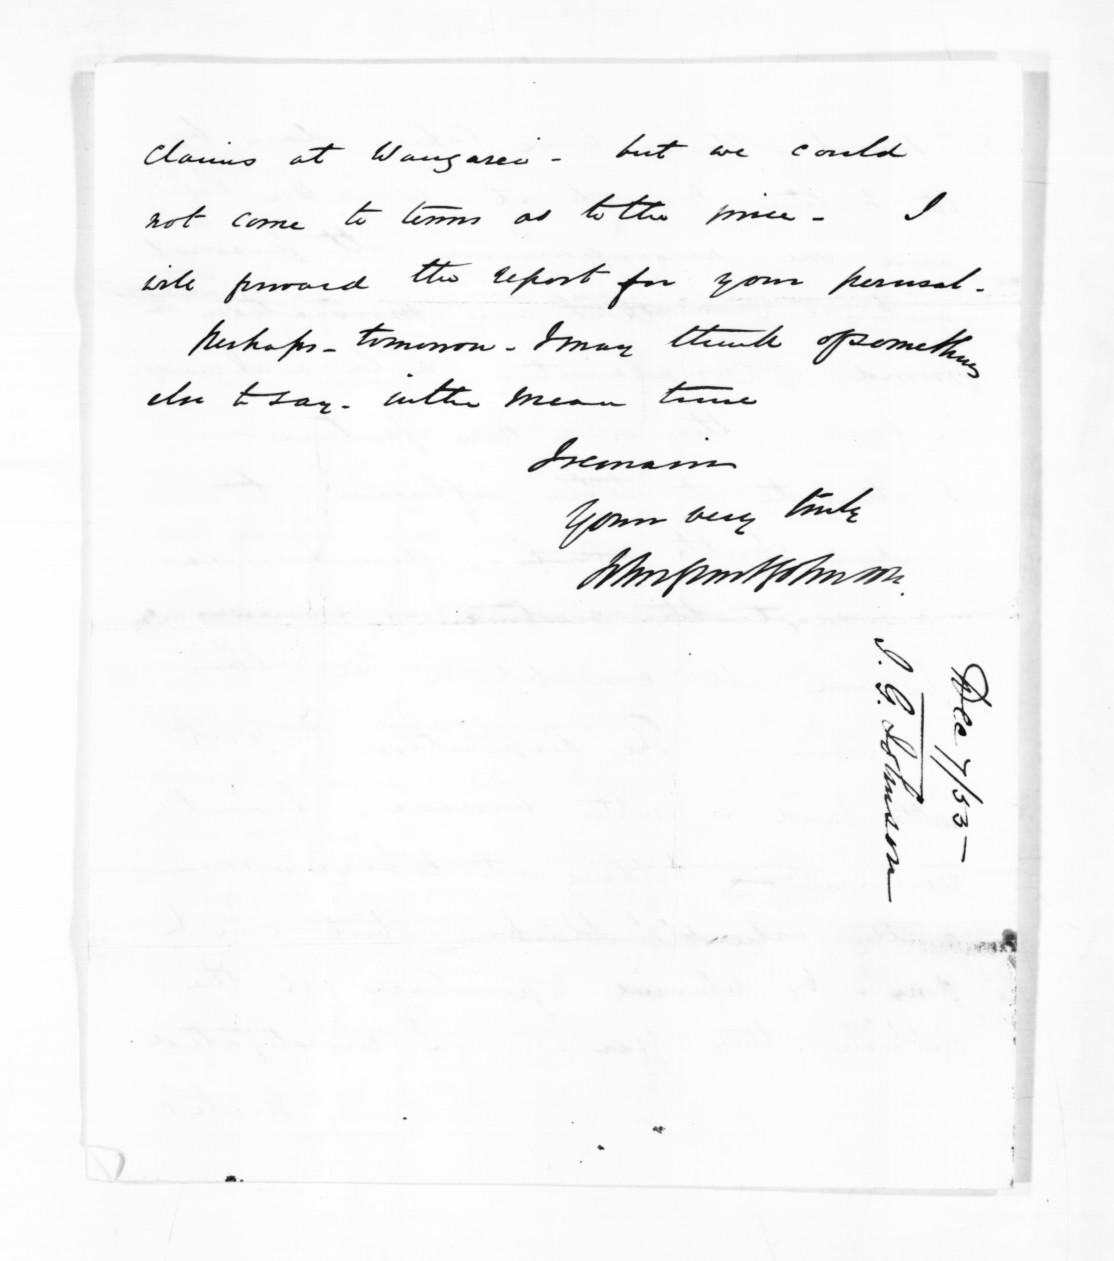 claims at Wangarei - but we could
not come to terms as to the price - I
will forward the report for your perusal.
Perhaps - tomorrow - I may think of something
else to say - in the mean time
I remain
Yours very truly
John Grant Johnson.
Dec 7/53
J. G. Johnson